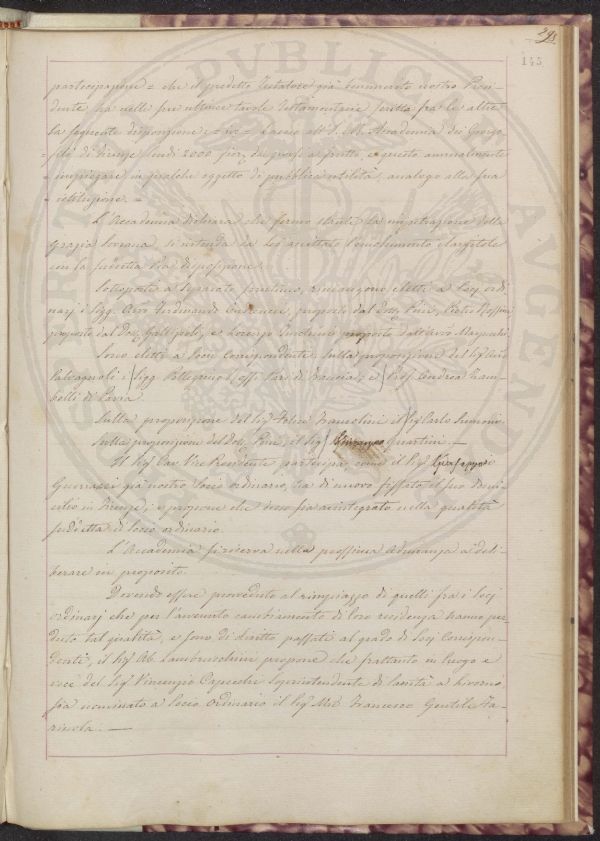 291
145
partecipazione = che il predetto Testatore già benemerito nostro Presi-
dente ha nelle sue ultime tavole Testamentarie scritto fra le altre
la seguente disposizione: = = Lascio all' I. e R. Accademia dei Georgo-
fili di Firenze scudi 2000 fior. da porsi a frutto, e questo annualmente
impiegare in qualche oggetto di pubblica utilità, analogo alla sua
istituzione. =
L'Accademia dichiara che fermo stante la impetrazione della
grazia Sovrana, s'intenda da Lei accettato l'emolumento elargitole
con la suddetta Pia disposizione.
Sottoposti a separato scrutinio, rimangono eletti a Socj ordi-
narj i Sigg. Avv. Ferdinando proposto dal Dott. Pietro Rossini
proposto dal Dott. e Lorenzo proposto dall'Avv.
Sono eletti a Socii Corrispondenti, sulla proposizione del Sig.
i Sigg. Pellegrino Rossi Pari di Francia, e Prof. Andrea Zam-
belli di Pavia.
Sulla proposizione del Sig. Felice il Sig. Carlo
Sulla proposizione del Dott. il Sig. Quartini. —
Il Sig. Cav. Vice Presidente partecipa, come il Sig. Giuseppe
già nostro Socio ordinario, ha di nuovo fissato il suo domi-
cilio in Firenze; e propone che esso sia reintegrato nella qualità
suddetta di Socio ordinario.
L'Accademia si riserva nella prossima Adunanza a deli-
berare in proposito.
Dovendo essere proveduto al rimpiazzo di quelli fra i Socj
ordinarj che per l'avvenuto cambiamento di loro residenza hanno per-
duta tal qualità, e sono di diritto passati al grado di Socj Corrispon-
denti, il Sig. Ab. Lambruschini propone che frattanto in luogo e
vece del Sig. Vincenzio Capecchi Soprintendente di Sanità a Livorno
sia nominato a Socio Ordinario il Sig. Mse. Francesco Gentile Fa-
rinola. —
PUBLICA
AUGENDAE